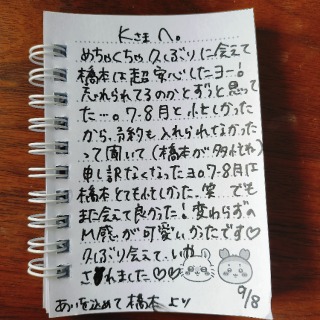 Kさまへ。
めちゃくちゃ久しぶりに会えて
橋本は超安心したヨー!
忘れられてるのかとずっと思って
た…。7・8月と忙しかった
から、予約も入れられてなかった
って聞いて(橋本が多忙ね)
申し訳なくなったヨ。7・8月は
橋本とても忙しかった。笑 でも
また会えて良かった!変わらずの
M感が可愛いかったです♡
久しぶり会えて、いや
されました♡♡
あいを込めて 橋本 より
9/8